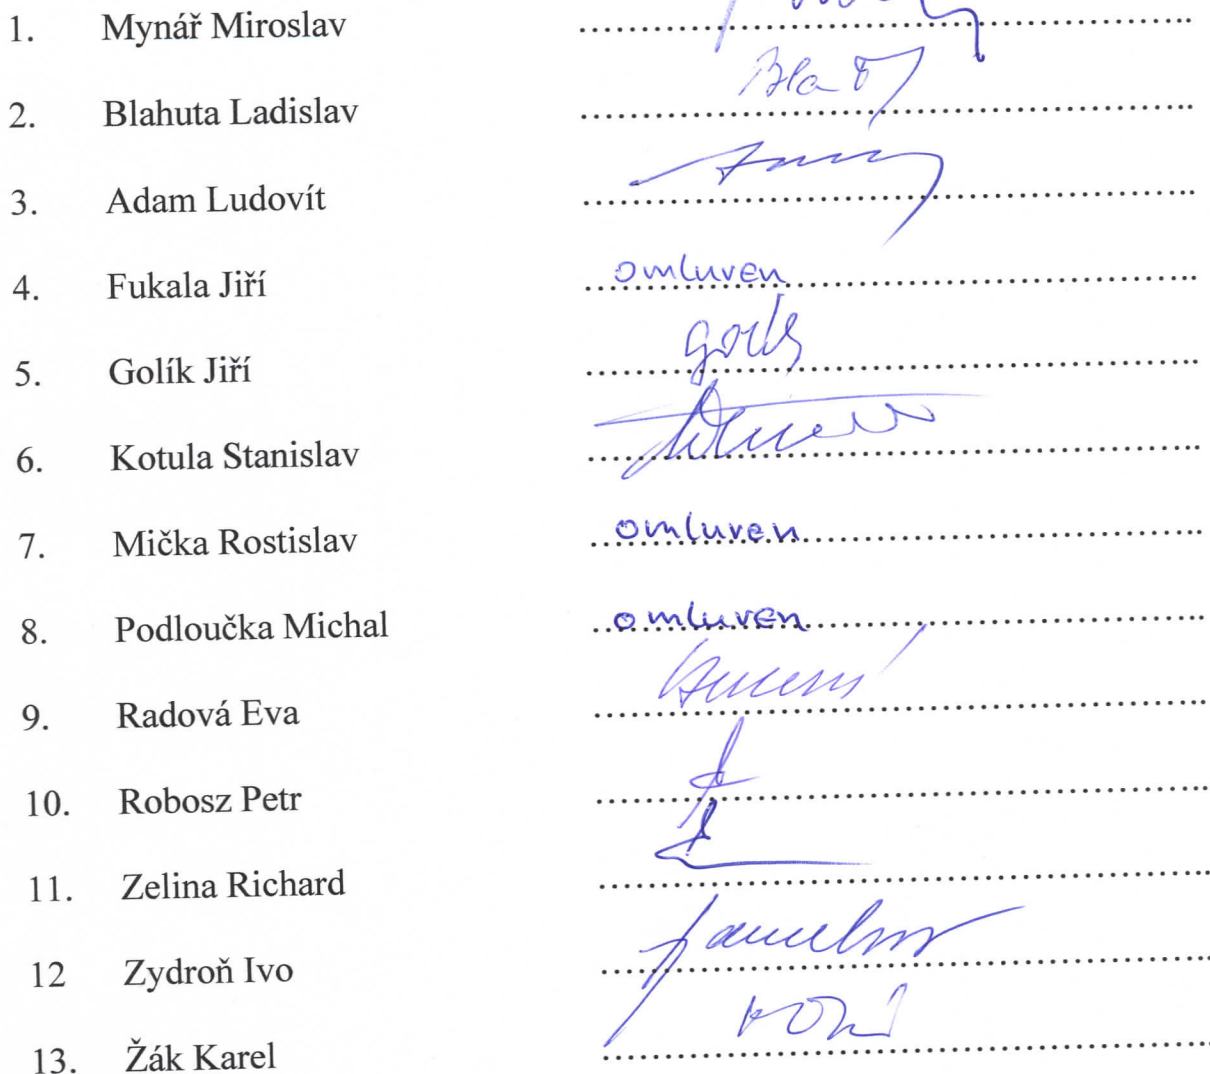 1. Mynář Miroslav
2. Blahuta Ladislav
3. Adam Ludovít
4. Fukala Jiří omluven
5. Golík Jiří
6. Kotula Stanislav
7. Mička Rostislav omluven
8. Podloučka Michal omluven
9. Radová Eva
10. Robosz Petr
11. Zelina Richard
12 Zydroň Ivo
13. Žák Karel